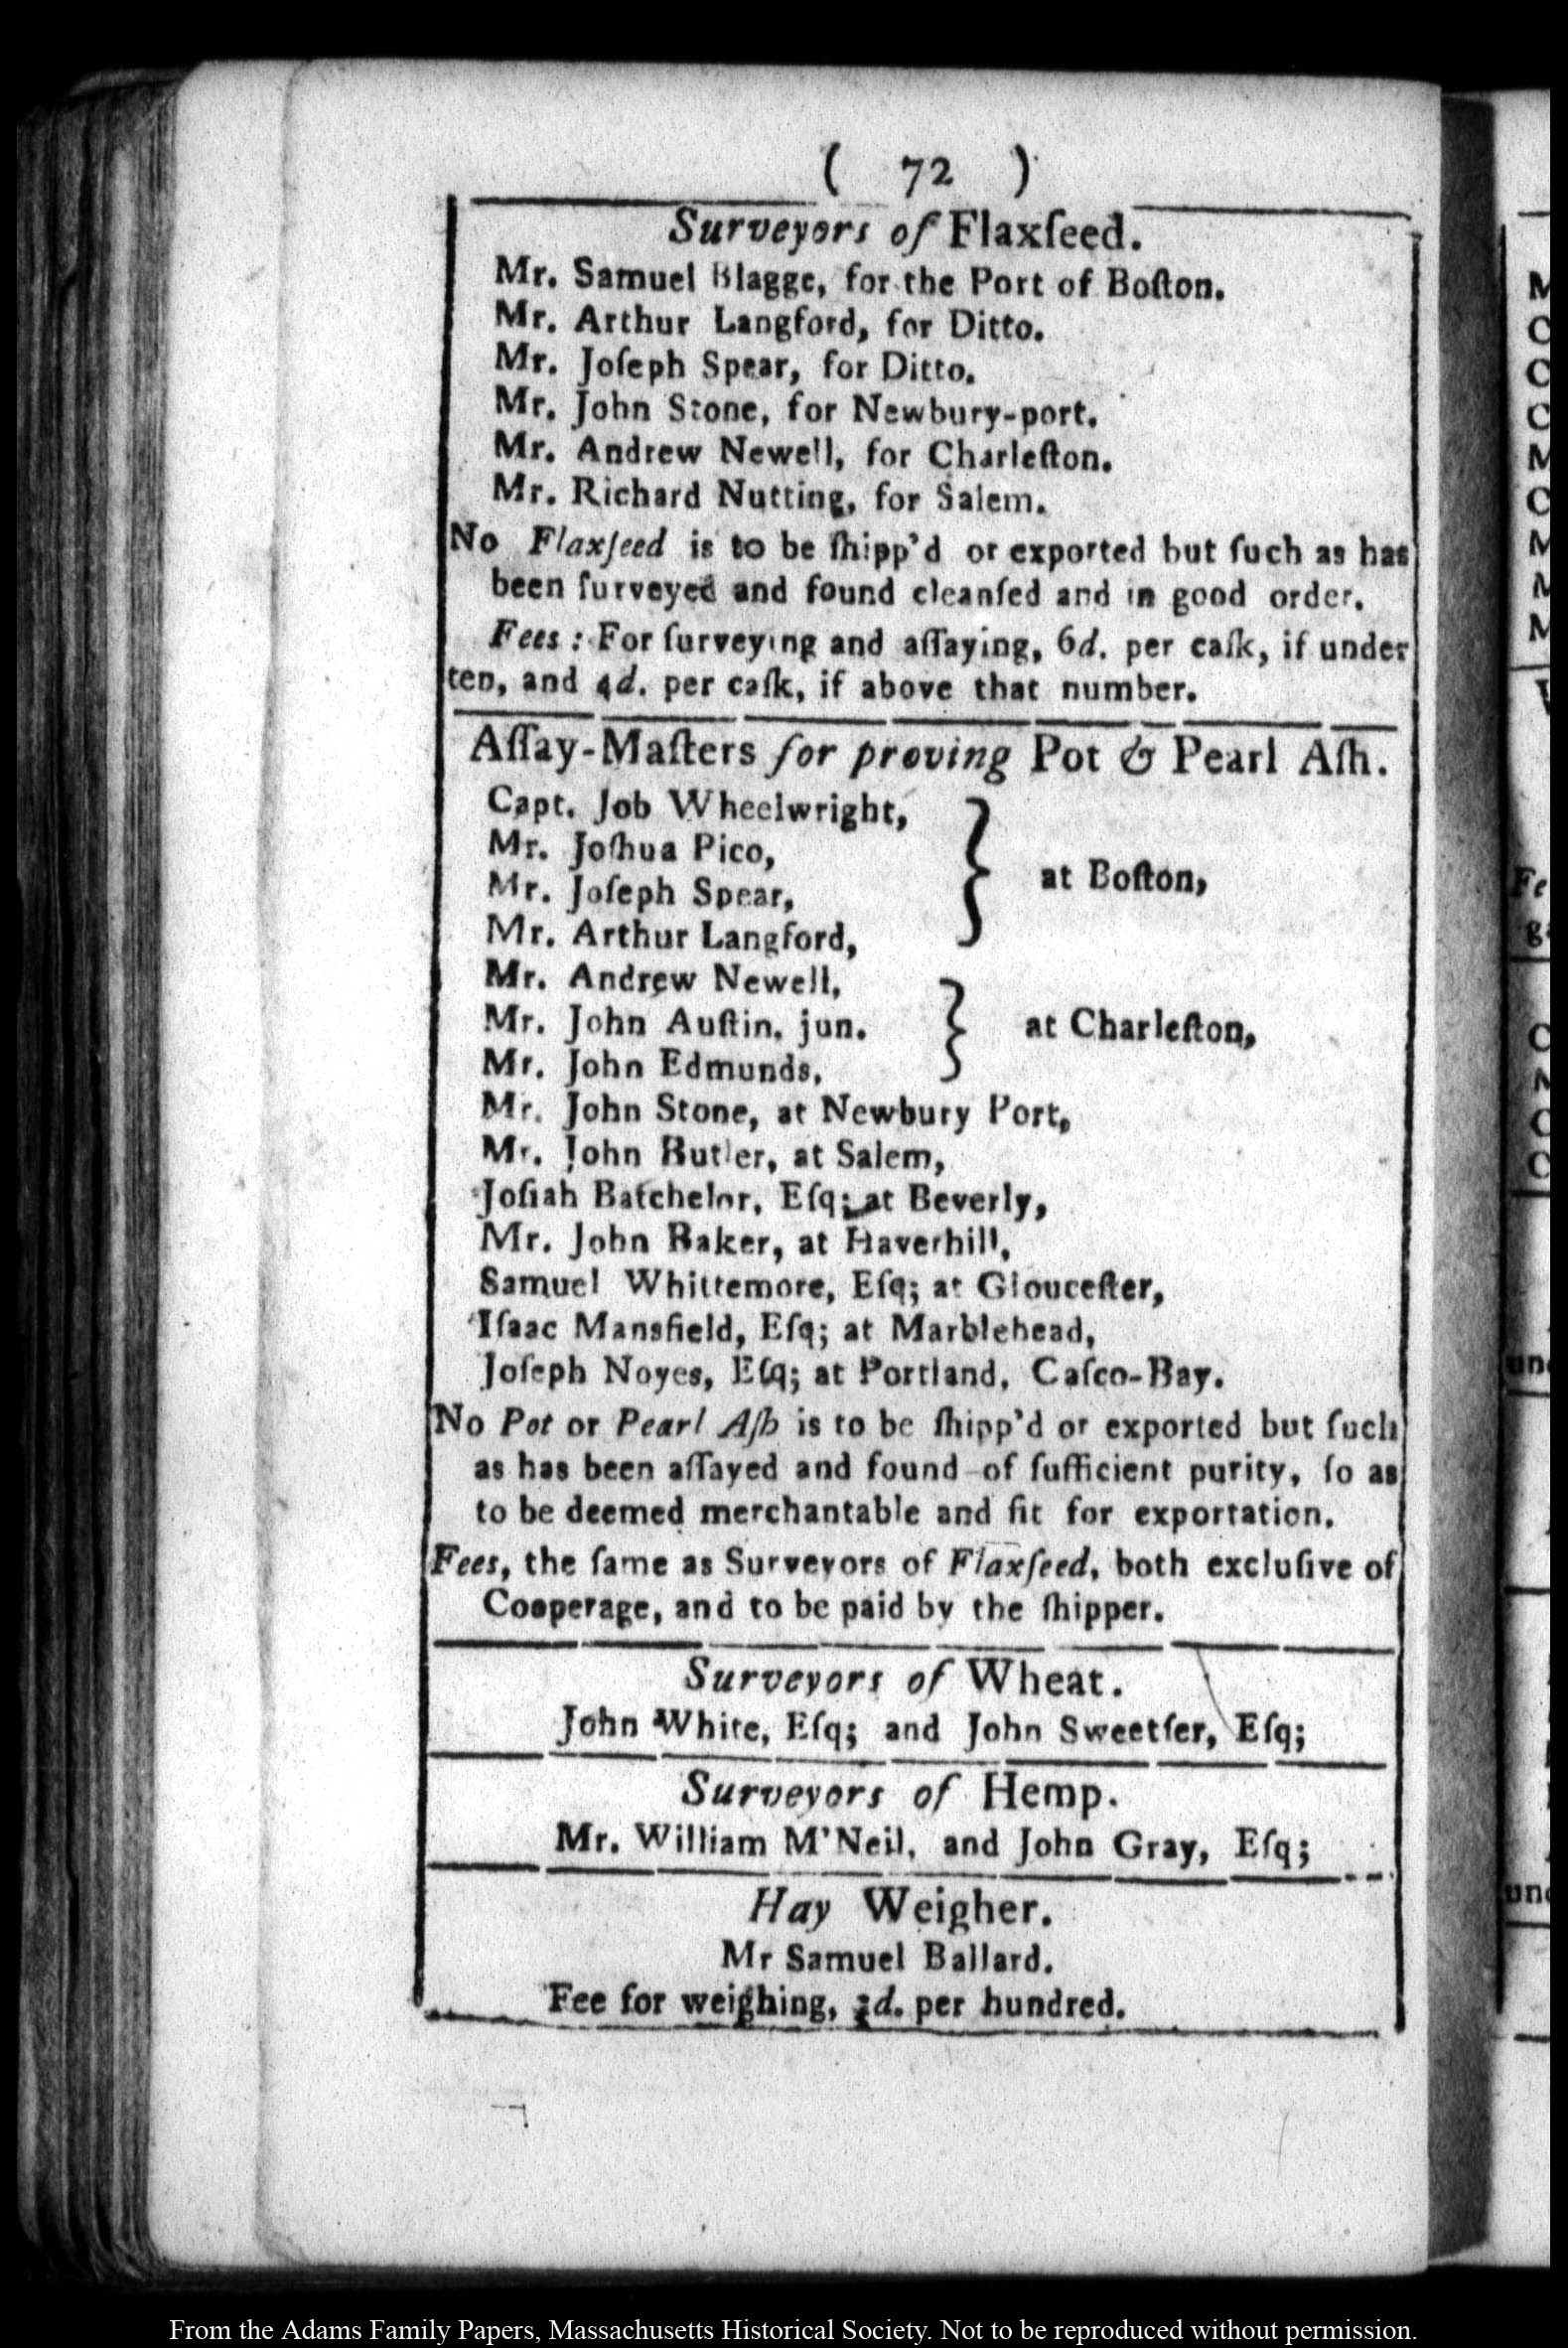 ( 72 )
Surveyors of Flaxſeed.
Mr. Samuel Blagge, for the Port of Boſton.
Mr. Arthur Langford, for Ditto.
Mr. Joſeph Spear, for Ditto.
Mr. John Stone, for Newbury-port.
Mr. Andrew Newell, for Charleſton.
Mr. Richard Nutting, for Salem.
No Flaxſeed is to be ſhipp'd or exported but ſuch as has
been ſurveyed and found cleanſed and in good order.
Fees: For ſurveying and aſſaying, 6d. per caſk, if under
ten, and 4d. per caſk, if above that number.
Aſſay-Maſters for proving Pot & Pearl Aſh.
Capt. Job Wheelwright,
Mr. Joſhua Pico,
Mr. Joſeph Spear,
Mr. Arthur Langford,
} at Boſton,
Mr. Andrew Newell,
Mr. John Auſtin, jun.
Mr. John Edmunds,
} at Charleſton,
Mr. John Stone, at Newbury Port,
Mr. John Butler, at Salem,
Joſiah Batchelor, Eſq; at Beverly,
Mr. John Baker, at Haverhill,
Samuel Whittemore, Eſq; at Glouceſter,
Iſaac Mansfield, Eſq; at Marblehead,
Joſeph Noyes, Eſq; at Portland, Caſco-Bay.
No Pot or Pearl Aſh is to be ſhipp'd or exported but ſuch
as has been aſſayed and found of ſufficient purity, ſo as
to be deemed merchantable and fit for exportation.
Fees, the ſame as Surveyors of Flaxſeed, both excluſive of
Cooperage, and to be paid by the ſhipper.
Surveyors of Wheat.
John White, Eſq; and John Sweetſer, Eſq;
Surveyors of Hemp.
Mr. William M'Neil, and John Gray, Eſq;
Hay Weigher.
Mr Samuel Ballard.
Fee for weighing, per hundred.
From the Adams Family Papers, Massachusetts Historical Society. Not to be reproduced without permission.